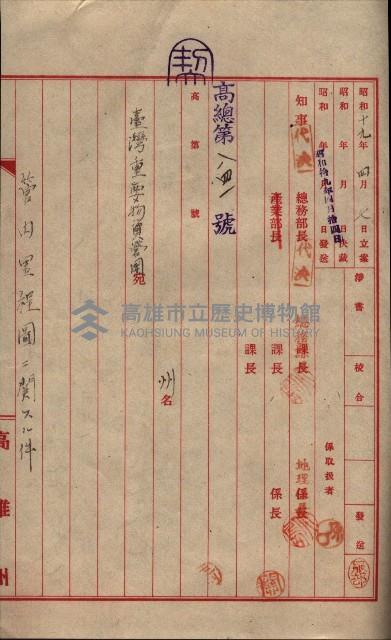 昭和十九年四月七日立案 淨書 校合 發送
昭和 年 月 日決裁
昭和 年 月 日發送 係取扱者
昭和拾九年四月拾四日
知事 代決 總務部長 代決 總務課長 地理係長
產業部長 課長 係長
課長
高總第一八四一號
高 第 號
州名
臺灣重要物資營團 宛
管内里程圖ニ關スル件
高雄州
高雄市立歷史博物館
KAOHSIUNG MUSEUM OF HISTORY